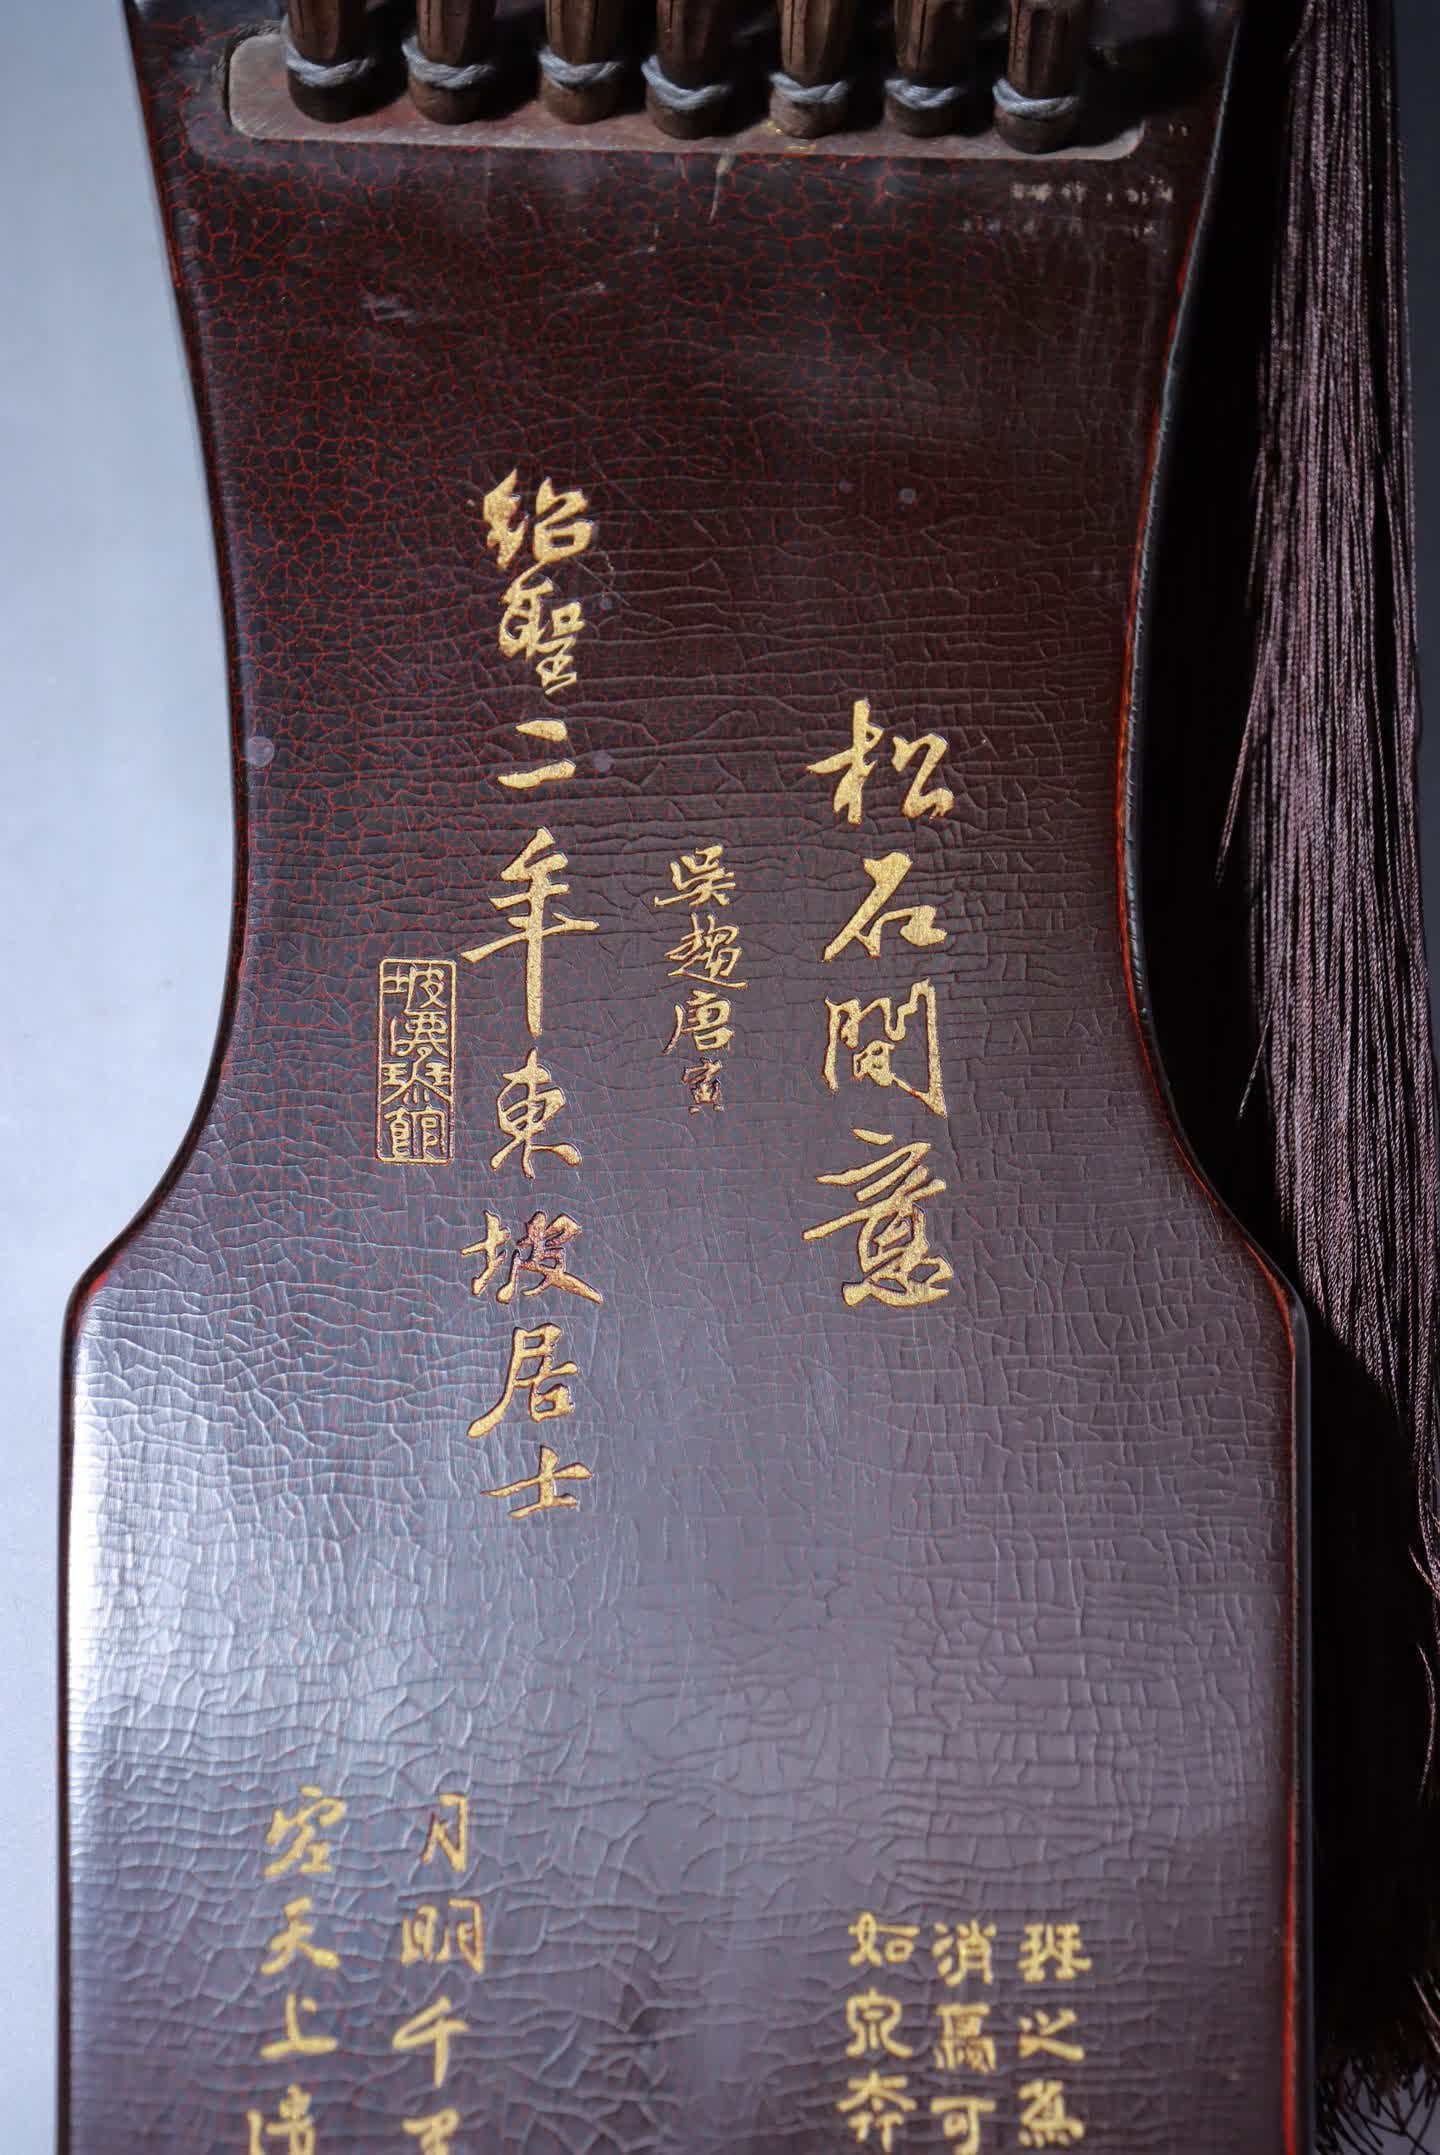 松石間意
吳趨唐寅
紹聖二年東坡居士
坡僊琴館
之為
消可
如泉奔
月明千里
空天上清